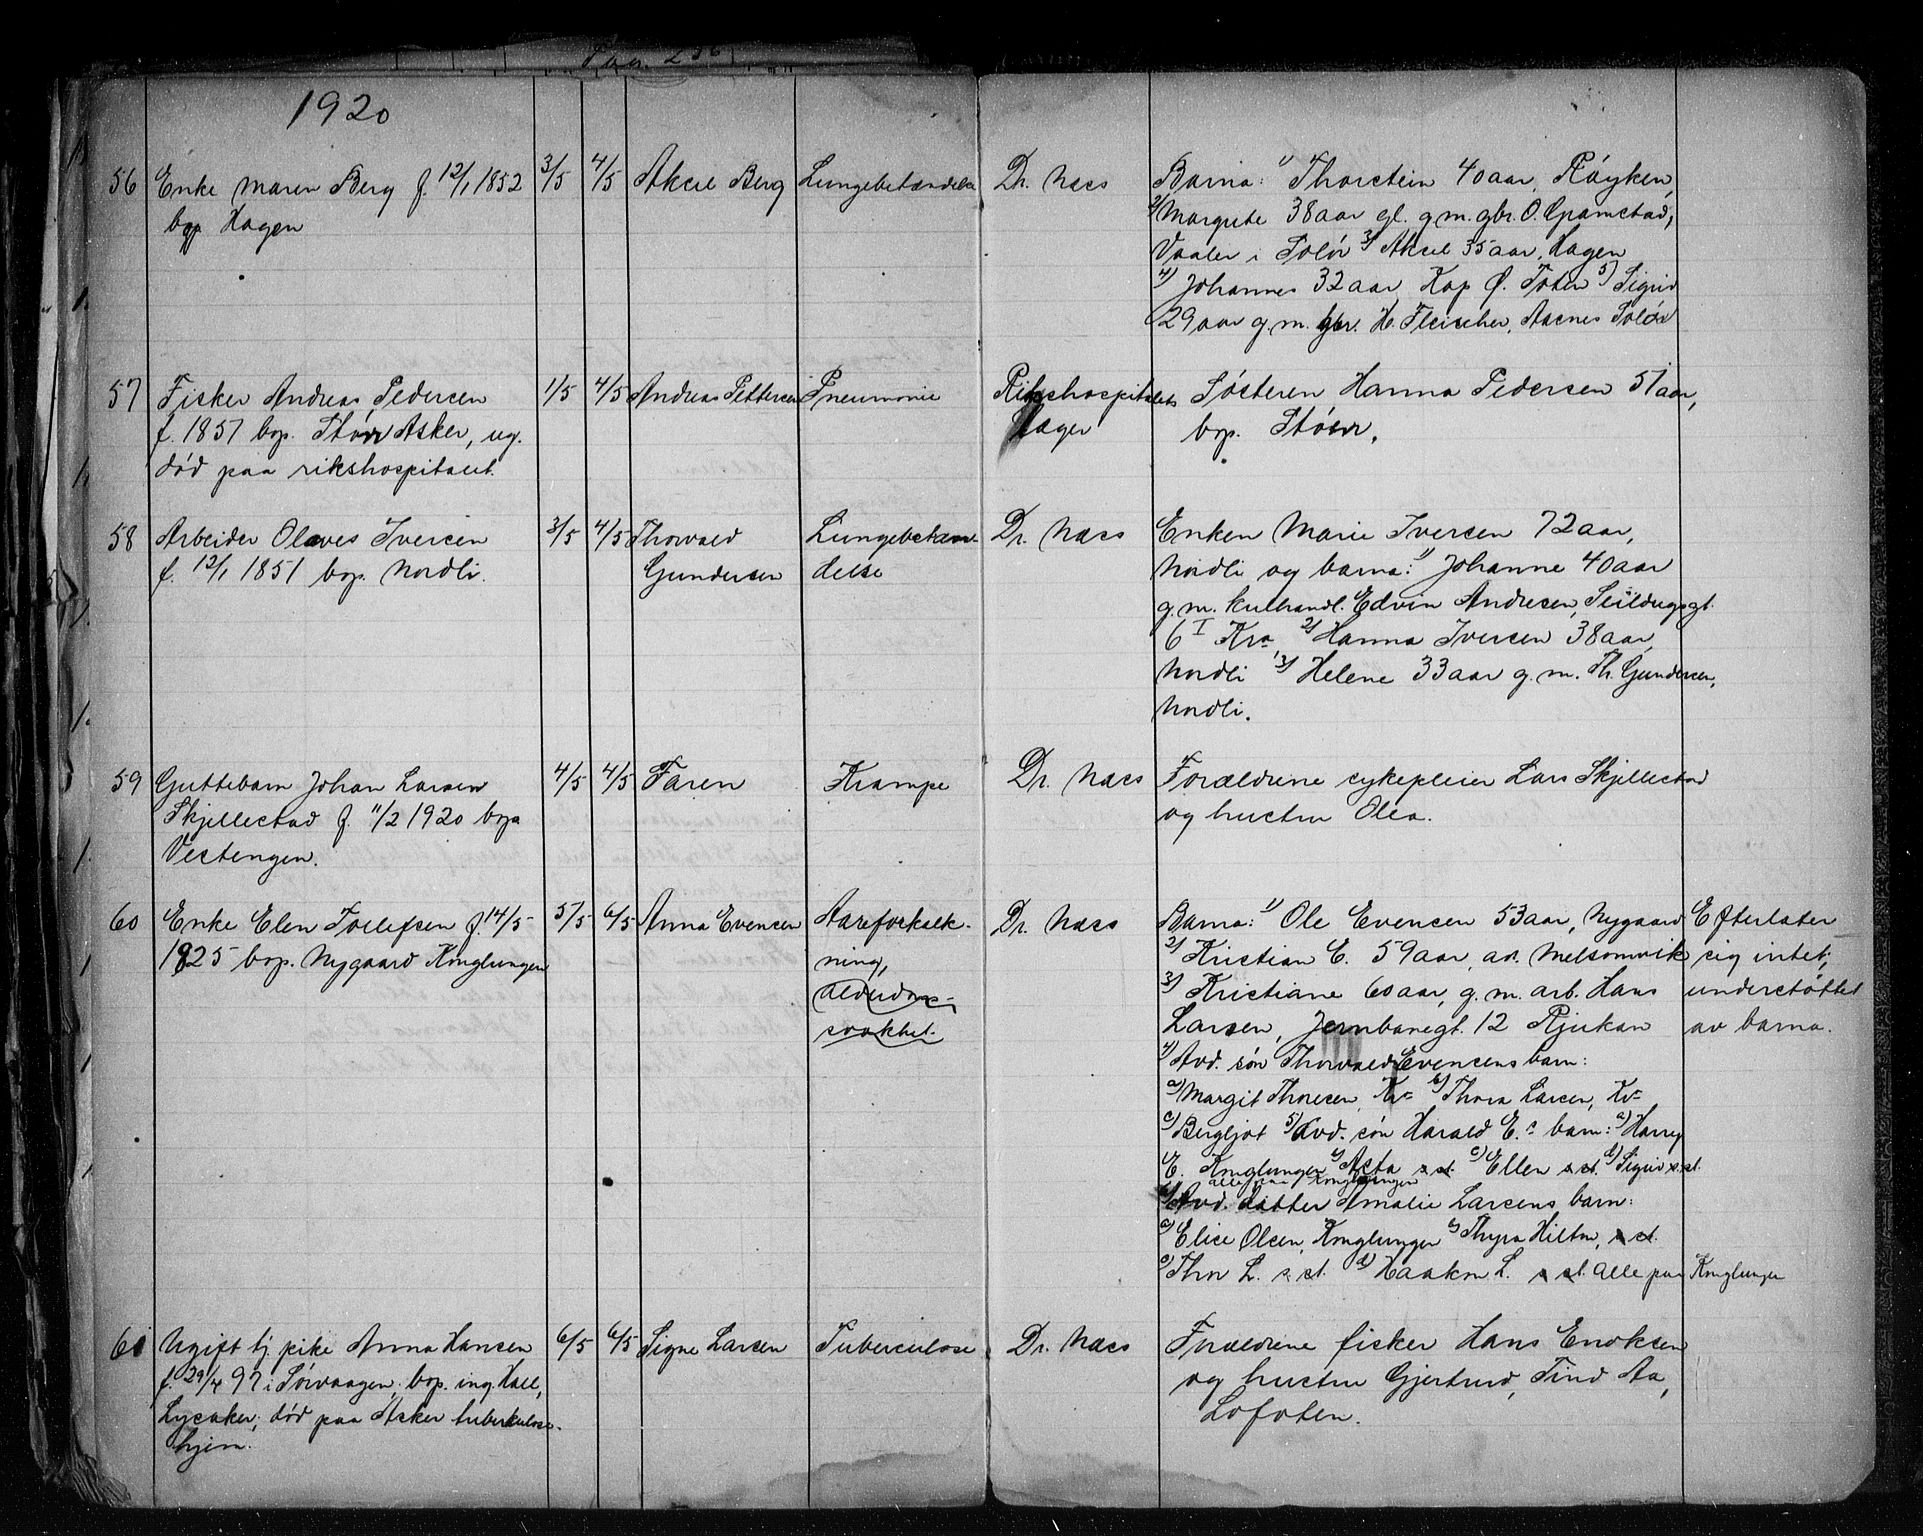 Pag. 256
1920
56 Enke Maren Berg f. 12/1 1852 3/5 4/5 Aksel Berg Lungebetændelse Dr. Næss Barna: 1) Thorstein 40 aar, Røyken,
bop Hagen 2) Margrete 38 aar gl. g. m. gbr. O. Gramstad,
Vaaler i Solør 3) Aksel 35 aar, Hagen
4) Johannes 32 aar Kap Ø. Toten 5) Sigrid
29 aar g. m. gbr. H. Fleischer, Aasnes Solør
57 Fisker Andreas Pedersen 1/5 4/5 Andreas Pettersen Pneumonie Rikshospitalets Søsteren Hanna Pedersen 51 aar,
f. 1857 bop. Asker, ug. Læger bop.
død paa rikshospitalet.
58 Arbeider Olaves Iversen 3/5 4/5 Thorvald Lungebetæn- Dr. Næss Enken Marie Iversen 72 aar,
f. 12/1 1851 bop. Nordli. Gundersen delse Nordli og barna: 1) Johanne 40 aar
g. m. kulhandl. Edvin Andresen, Seildugsgt.
6 I Kra 2) Hanna Iversen 38 aar,
Nordli 3) Helene 33 aar g. m. Th. Gundersen,
Nordli.
59 Guttebarn Johan Larsen 4/5 4/5 Faren Krampe Dr. Næss Forældrene sykepleier Lars Skjellestad
Skjellestad f. 11/2 1920 bop og hustru Olea.
Vestengen.
60 Enke Elen Tollefsen f. 14/5 5/5 6/5 Anna Evensen Aareforkalk- Dr. Næss Barna: 1) Ole Evensen 53 aar, Nygaard Efterlater
1825 bop. Nygaard Konglungen ning, 2) Kristian E. 59 aar, ar. Melsomvik sig intet;
alderdoms- 3) Kristiane 60 aar, g. m. arb. Hans understøttet
svakhet. Larsen, Jernbanegt. 12 Rjukan av barna.
4) Avd. søn Thorvald Evensens barn:
a) Margit Thoresen, Kr. b) Thora Larsen, Kr.
c) Bergljot 5) Avd. søn Harald E.s barn: a) Harry
E. Konglungen b) Asta s. st. c) Ellen s. st. d) Sigrid s. st.
alle paa Konglungen
6) Avd. datter Amalie Larsens barn:
a) Elise Olsen, Konglungen b) Thyra Hilton, s. st.
c) Thor L. s. st. d) Haakon L. s. st. alle paa Konglungen
61 Ugift tj. pike Anna Hansen 6/5 6/5 Signe Larsen Tuberculose Dr. Næss Forældrene fisker Hans Enoksen
f. 29/4 97 i Sørvaagen, bop. ing. Hall, og hustru Gjertrud, Tind Aa,
Lysaker; død paa Asker tuberkulose- Lofoten.
hjem.